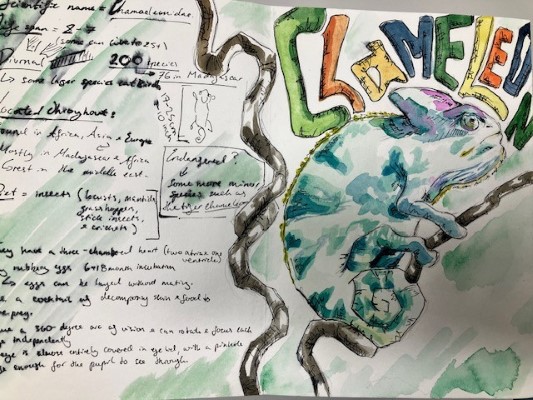 Scientific name = Chamaeleonidae.
span = 2-7
(some can live to 25+)
Diurnal 200 species
→ 76 in Madagascar
↳ some larger species eat birds
Located throughout:
Found in Africa, Asia & Europe
Mostly in Madagascar & Africa
in the middle east.
Endangered?
↳ Some more minor
species such as
chameleon
= insects (locusts, mantids
grasshoppers,
stick insects,
& crickets)
have a three-chambered heart (two atria & one
ventricle)
eggs 6-18 month incubation
↳ eggs can be layed without mating.
a cocktail of decomposing skin & food is
prey.
a 360-degree arc of vision & can rotate & focus each
independently
is almost entirely covered in eyelid, with a pinhole
enough for the pupil to see through.
CHAMELEON